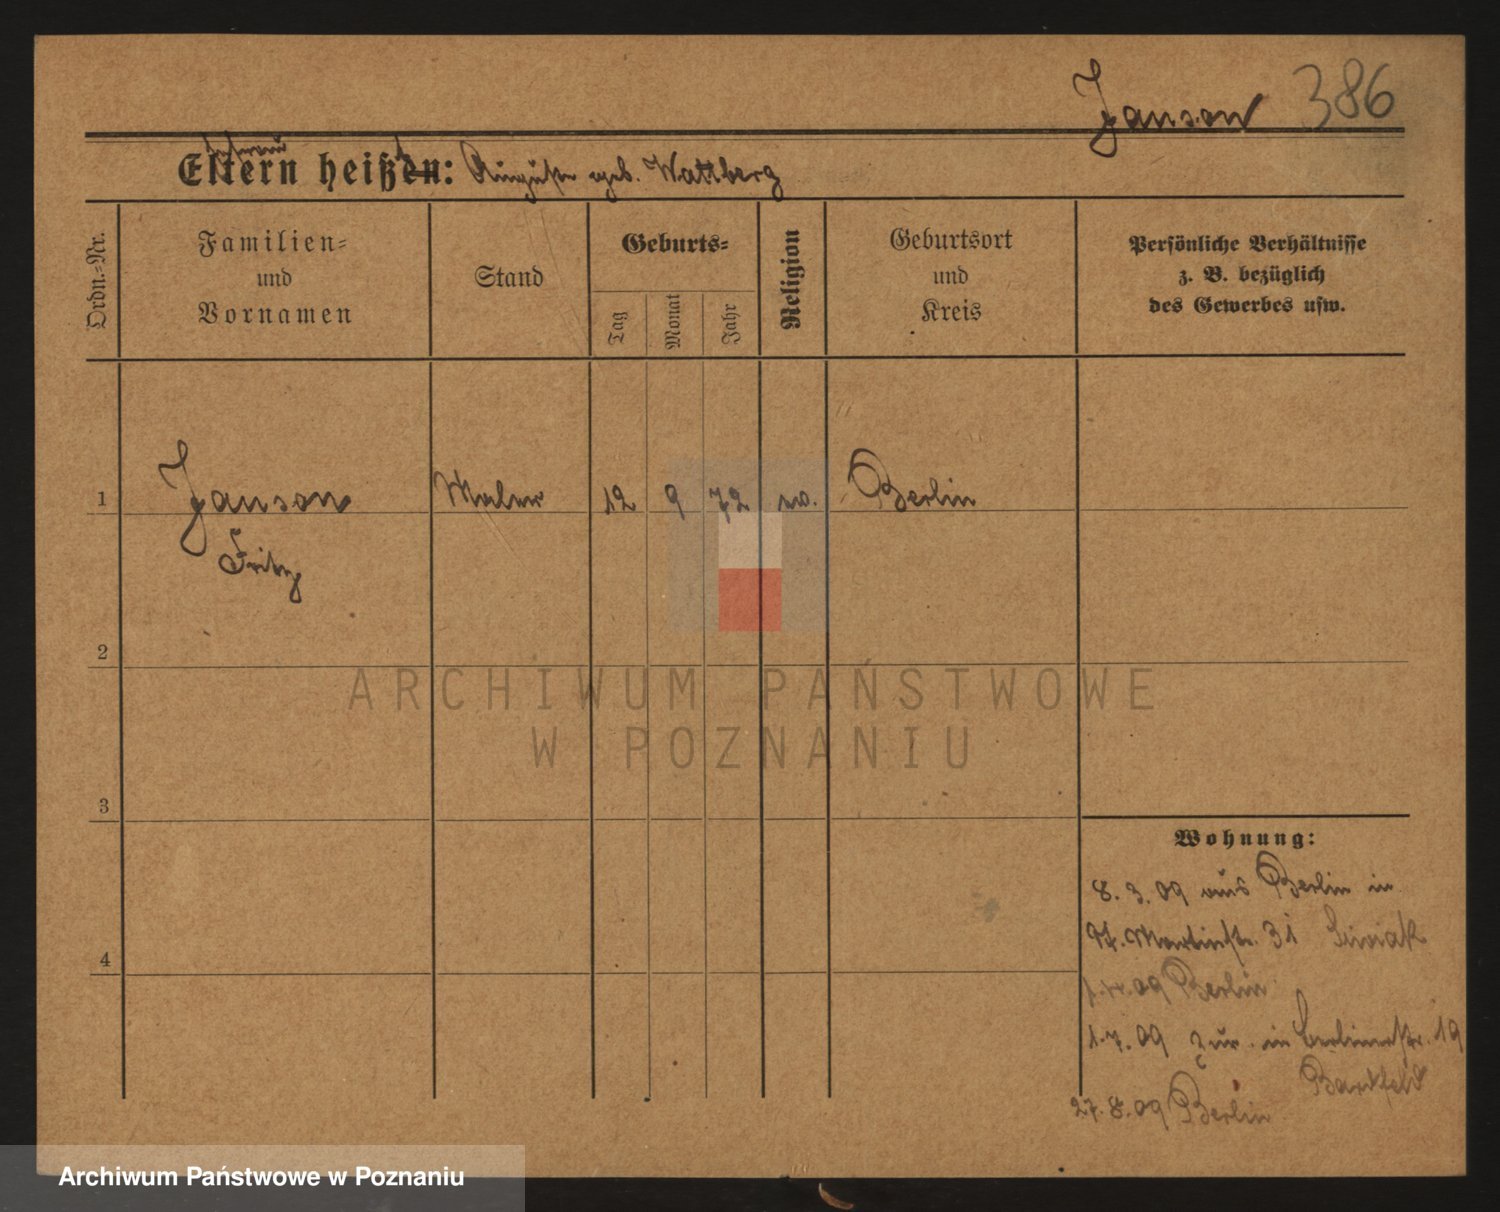 Janson 386
Ehefrau
Eltern heißt: Auguste geb. Wattberg
Ordn.-Nr.
Familien-
und
Vornamen
Stand
Geburts-
Tag
Monat
Jahr
Religion
Geburtsort
und
Kreis
Persönliche Verhältnisse
z. B. bezüglich
des Gewerbes usw.
1 Janson Maler 12 9 72 ev. Berlin
Fritz
2
ARCHIWUM PAŃSTWOWE
W POZNANIU
3
Wohnung:
8. 3. 09 aus Berlin in
Martinstr. 31
4
09 Berlin
1. 7. 09 zur. in Berlinerstr. 19
Bartfeld
27. 8. 09 Berlin
Archiwum Państwowe w Poznaniu